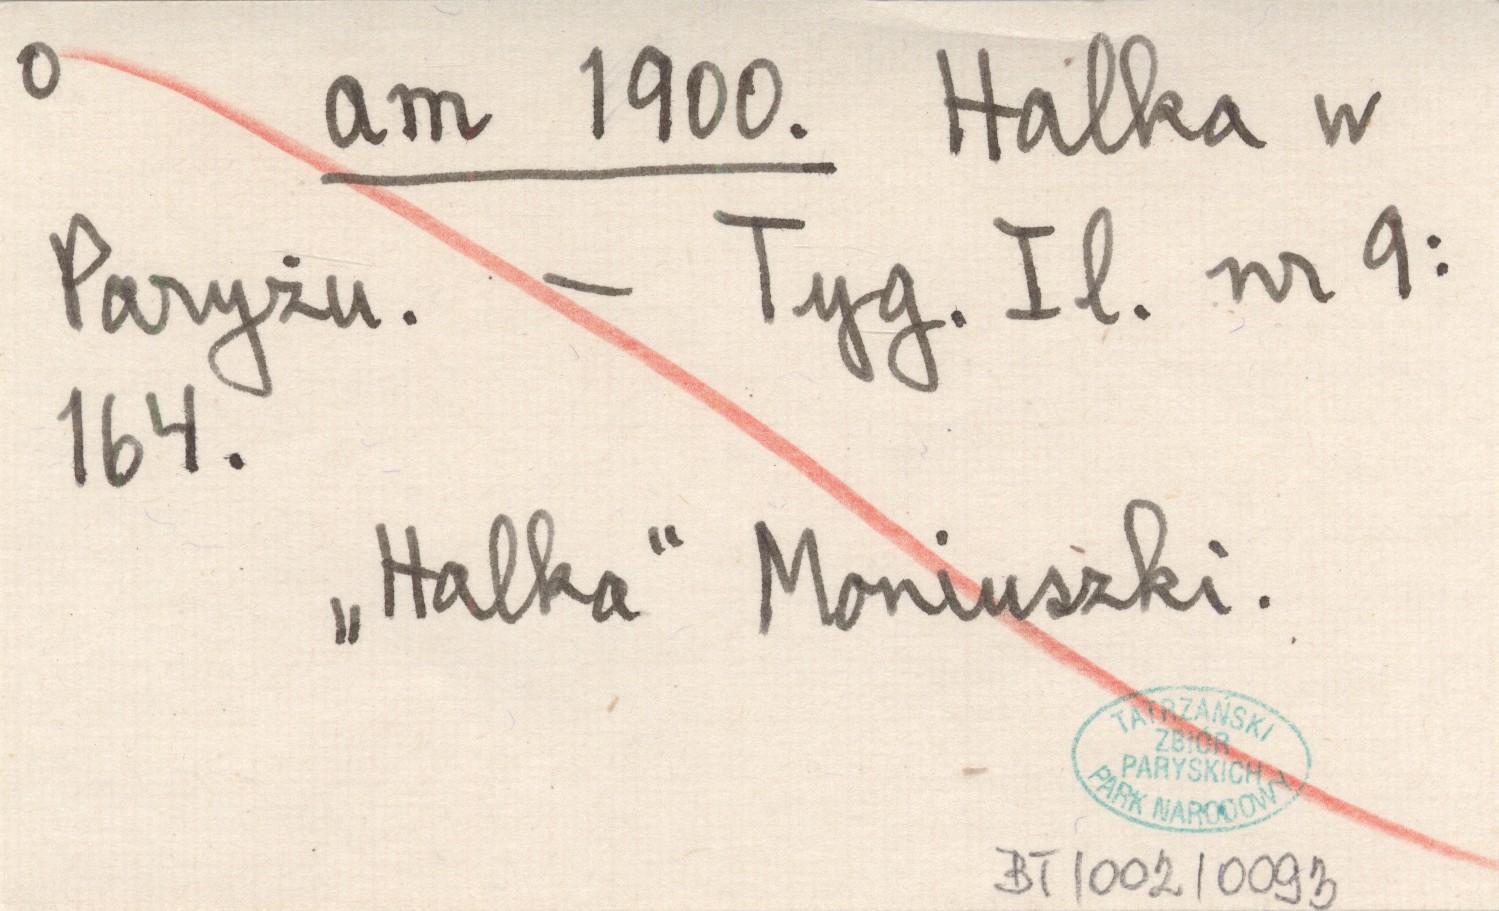 o
am 1900. Halka w
Paryżu. – Tyg. Il. nr 9:
164.
„Halka“ Moniuszki.
TATRZAŃSKI
ZBIÓR
PARYSKICH
PARK NARODOWY
BT/002/0093